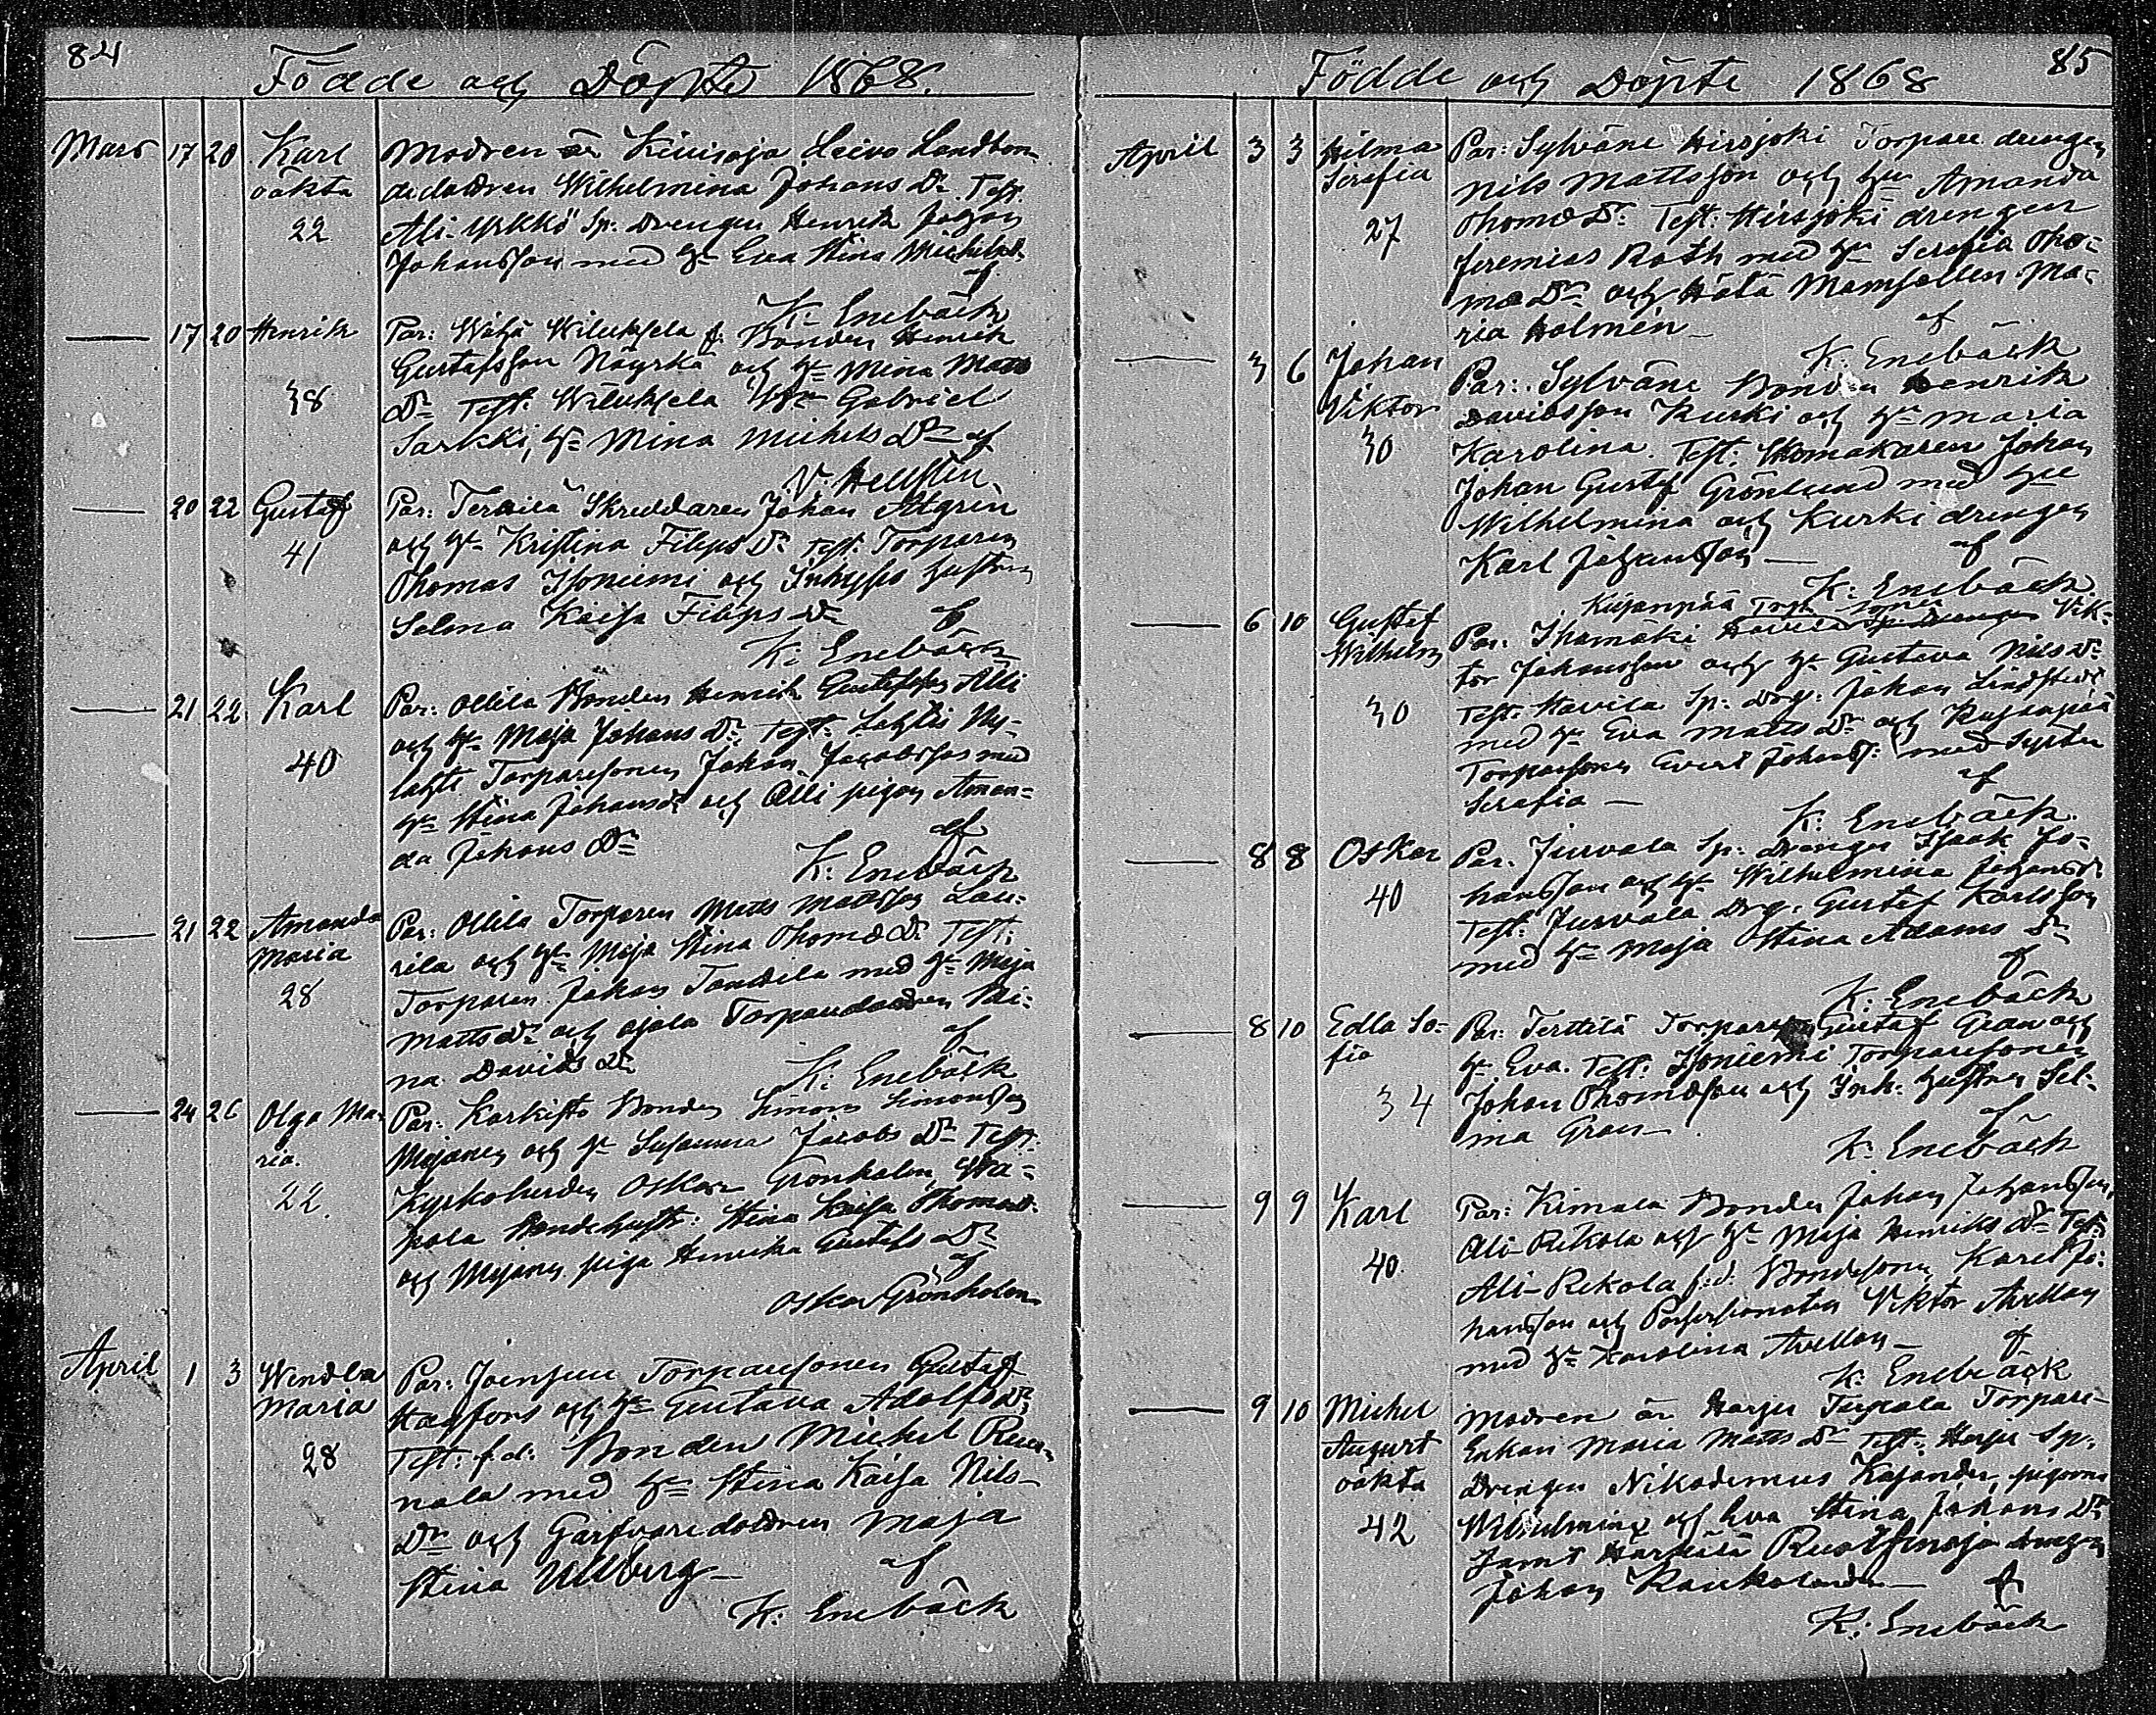 84
Födde och Döpte 1868.
Mars 17 20 Karl Modren är Kiuisoja Leivo Landbon-
oäkta dedottren Wilhelmina Johans Dr. Test.
22 Ali-Yrkkö Sp. Drengen Henrik Johan
Johansson med h. Eva Stina Michelsd.
af
K. Enebäck
— 17 20 Henrik Par: Wähä Wiluksela f. Bonden Henrik
Gustafsson Näyrkä och h. Mina Matts
38 Dr Test: Wiluksela Gabriel
Sarkki, h. Mina Michels Dr af
V. Hellsten
— 20 22 Gustaf Par: Skreddaren Johan Algrén
41 och h. Kristina Filips Dr Test. Torparen
Thomas Isoniemi och hustru
Selma Kaisa Filips Dr af
K. Enebäck
— 21 22 Karl Par: Ollila Bonden Henrik Gustafsson Alli
och h. Maja Johans Dr. Test: Lahtis Ny-
40 lahti Torparesonen Johan Jacobsson med
h. Stina Johansdr och Alli pigan Aman-
da Johans Dr af
K. Enebäck
— 21 22 Amanda Par: Ollila Torparen Matts Mattsson Lau-
Maria rila och h. Maja Stina Thomæ Dr Test:
28 Torparen Johan med h. Maja
Matts Dr och Ojala Torparedottren Mi-
na Davids Dr af
K. Enebäck
— 24 26 Olga Ma- Par: Karkisto Bonden Simon Simonsson
ria. Mejanen och h. Susanna Jacobs Dr Test:
22. Kyrkoherden Oskar Grönholm,
pola Bondehustr: Stina Kaisa Thomæd.
och Mejanen piga Henrika Gustafs Dr
af
Oskar Grönholm
April 1 3 Wendla Par: Joensuu Torparesonen Gustaf
Maria Hagfors och h. Gustava Adolfs Dr.
28 Test: f.d. Bonden Michel
nala med h. Stina Kaisa Nils
Dr och Garfvaredottren Maja
Stina Ullberg — af
K. Enebäck
85
Födde och Döpte 1868
April 3 3 Hilma Par: Sylväne Hirsjoki Torpare drengen
Serafia Nils Mattsson och hu Amanda
27 Thomæ Dr: Test: Hirsjoki drengen
Jeremias Roth med h. Serafia Tho-
mæ Dr och Hätä Mamsellen Ma-
ria Holmén — af
K. Enebäck
— 3 6 Johan Par: Sylväne Bonden Henrik
Viktor Davidsson Kurki och h. Maria
30 Karolina. Test: Skomakaren Johan
Johan Gustaf Grönlund med hu
Wilhelmina och Kurki drengen
Karl Johansson — af
K. Enebäck
Kujanpää Torp. sonen
— 6 10 Gustaf Par. Ihamäki Vik-
Wilhelm tor Johansson och h. Gustava Nils Dr.
30 Test. Havila Sp. Drg: Johan Lindstedt
med h. Eva Matts Dr och Kujanpää
Torparsonen Evert Johanss: med Syster
Serafia — af
K. Enebäck
— 8 8 Oskar Par. Jurvala Sp. Drengen Isaak Jo-
40 hansson och h. Wilhelmina Johansdr
Test: Jurvala Drg. Gustaf Karlsson
med h. Maja Stina Adams Dr
af
K. Enebäck
— 8 10 Edla So- Par: Terttilä Torparen Gustaf Gran och
fia h. Eva. Test: Isoniemi Torparesonen
34 Johan Thomasson och Inh. hustrun Sel-
ma Gran — af
K. Enebäck
— 9 9 Karl Par: Kimala Bonden Johan Johansson
40. Ali-Rekola och h. Maja Henriks Dr Test:
Ali-Rekola f.d. Bondesonen Karl Jo-
hansson och Possessionaten Viktor Avellan
med h. Karolina Avellan — af
K. Enebäck
— 9 10 Michel Modren är Harju Torpare-
August Enkan Maria Matts Dr Test: Harju Sp.
oäkta Drengen Nikodemus Kajander pigorna
42 Wilhelmina och Eva Stina Johans Dr
samt drengen
Johan — af
K. Enebäck